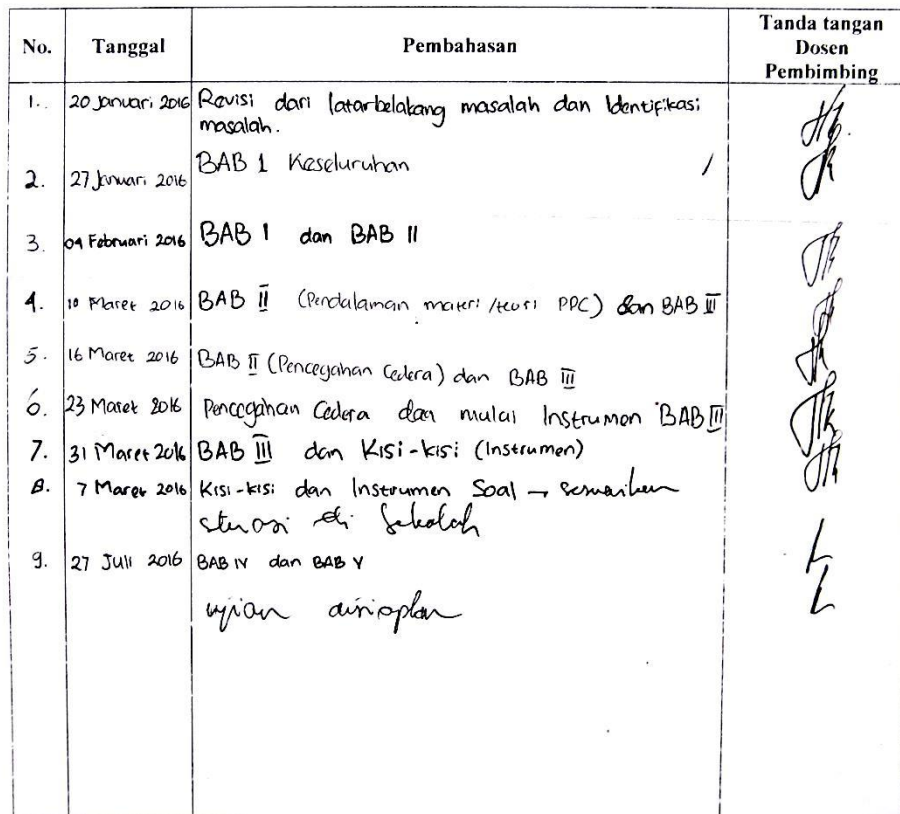 No. Tanggal Pembahasan Tanda tangan Dosen Pembimbing
1. 20 Januari 2016 Revisi dari latarbelakang masalah dan Identifikasi
masalah.
2. 27 Januari 2016 BAB 1 Keseluruhan
3. 04 Februari 2016 BAB I dan BAB II
4. 10 Maret 2016 BAB II (Pendalaman materi /teori PPC) dan BAB III
5. 16 Maret 2016 BAB II (Pencegahan Cedera) dan BAB III
6. 23 Maret 2016 Pencegahan Cedera dan mulai Instrumen BAB III
7. 31 Maret 2016 BAB III dan Kisi-kisi (Instrumen)
8. 7 Maret 2016 Kisi-kisi dan Instrumen Soal → sesuaikan
situasi di Sekolah
9. 27 Juli 2016 BAB IV dan BAB V
ujian disiapkan